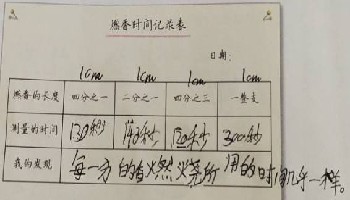 燃香时间记录表
日期:
1cm 1cm 1cm 1cm
燃香的长度 四分之一 二分之一 四分之三 一整支
测量的时间 秒 秒 秒 300秒
我的发现 每一方的香火燃 所用的时间几乎一样。